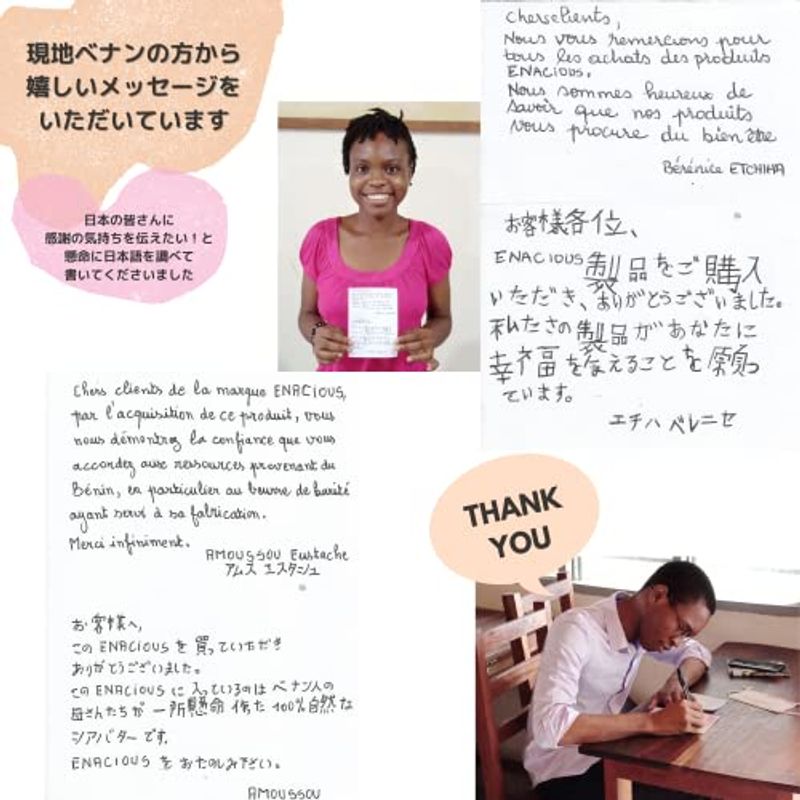 現地ベナンの方から
嬉しいメッセージを
いただいています
日本の皆さんに
感謝の気持ちを伝えたい！と
懸命に日本語を調べて
書いてくださいました
Chers clients,
Nous vous remercions pour
tous les achats des produits
ENACIOUS.
Nous sommes heureux de
savoir que nos produits
vous procure du bien être
Bérénice ETCHIHA
お客様各位、
ENACIOUS製品をご購入
いただき、ありがとうございました。
私たさの製品があなたに
幸福を与えることを願っ
ています。
エチハ ベレニセ
Chers clients de la marque ENACIOUS,
par l'acquisition de ce produit, vous
nous démontrez la confiance que vous
accordez aux ressources provenant du
Bénin, en particulier au beurre de karité
ayant servi à sa fabrication.
Merci infiniment.
AMOUSSOU Eustache
アムス エスタシュ
お客様へ,
この ENACIOUS を 買っていただき
ありがとうございました。
この ENACIOUS に 入っているのは ベナン人の
母さんたちが 一所懸命 作た 100%自然な
シアバターです。
ENACIOUS をおたのしみ下さい。
AMOUSSOU
THANK
YOU